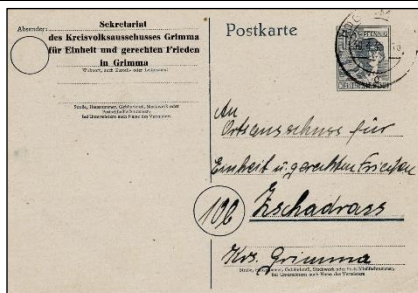 Absender:
Sekretariat
des Kreisvolksausschusses Grimma
für Einheit und gerechten Frieden
in Grimma
Wohnort, auch Zustell- oder Leitpostamt
Straße, Hausnummer, Gebäudeteil, Stockwerk oder
Postschließfachnummer,
bei Untermietern auch Name des Vermieters
Postkarte
An
Ortsausschuss für
Einheit u. gerechten Frieden
10b
Zschadrass
Krs. Grimma
Straße, Hausnummer, Gebäudeteil, Stockwerk oder Postschließfachnummer,
bei Untermietern auch Name des Vermieters